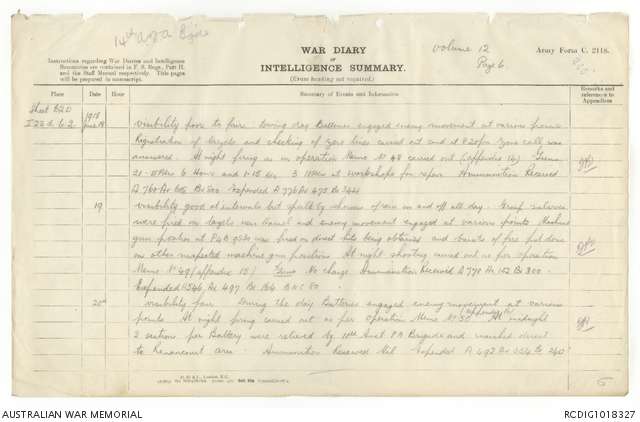 14th A.F.A. Bgde
WAR DIARY
or
INTELLIGENCE SUMMARY.
(Erase heading not required.)
Volume 12
Page 6
Army Form C. 2118.
Instructions regarding War Diaries and Intelligence
Summaries are contained in F. S. Regs., Part II.
and the Staff Manual respectively. Title pages
will be prepared in manuscript.
Place
Date
Hour
Summary of Events and Information
Remarks and
references to
Appendices
Sheet 62D
I 22 d 6.2
1918
June 18
Visibility poor to fair. During day Batteries engaged enemy movement at various points
Registration of targets and checking of zone lines carried out and at zone call was
answered. At night firing as in operation Memo No 48 carried out (appendix 14) Guns
21 - 18Prs 6 Hows and 1-15 3 18Prs at workshops for repair Ammunition Received
A 760 Ax BX 300 Expended A 776 Ax 670 Bx 344
19
Visibility good at intervals but spoilt by showers of rain on and off all day. Group salvoes
were fired on targets and enemy movement engaged at various points Machine
gun position at was fired on direct hits being obtained and bursts of fire put down
on other suspected machine gun positions At night shooting carried out as per operation
Memo No 49 (appendix 15) Guns No change Ammunition Received A 770 Ax 152 Bx 300
Expended A 546 Ax 497 Bx 164
20th
Visibility fair During the day Batteries engaged enemy movement at various
points At night firing carried out as per operation Memo No 50 At midnight
2 sections per Battery were relieved by 11th Aust FA Brigade and marched direct
to area Ammunition Received Nil Expended A 492 Ax 354 Bx 240
AUSTRALIAN WAR MEMORIAL
RCDIG1018327